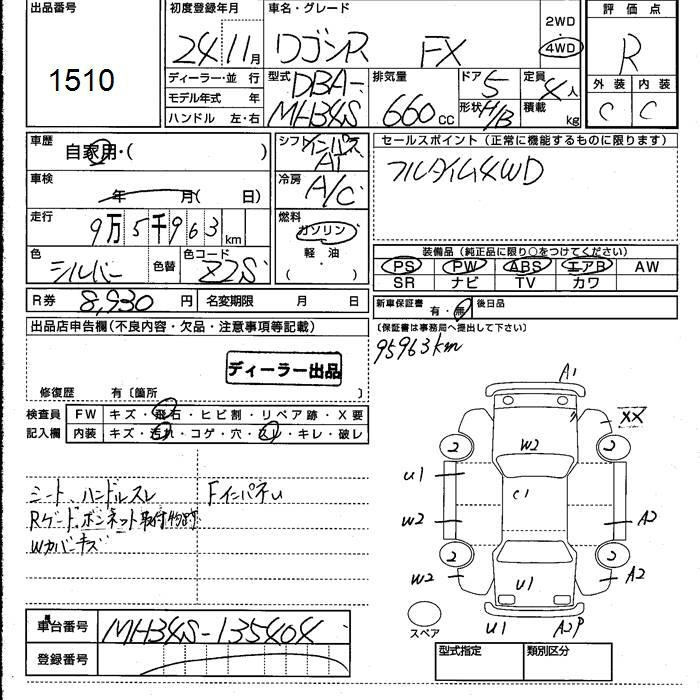 出品番号
1510
初度登録年月
24 11月
車名・グレード
ワゴンR FX
2WD
4WD
評価点
R
外装 内装
C C
ディーラー・並行
モデル年式 年
ハンドル 左・右
型式
DBA-
MH34S
排気量
660cc
ドア 5
形状 H/B
定員 4人
積載 kg
車歴
自家用・( )
シフト インパネ
AT
セールスポイント(正常に機能するものに限ります)
フルタイム4WD
車検
年 月( 日)
冷房
A/C
走行
9万5千963km
燃料
ガソリン
軽油
( ・ )
色
シルバー 色替
色コード
Z2S
装備品(純正品に限り○をつけてください)
PS PW ABS エアB AW
SR ナビ TV カワ
R券 8,930円
名変期限 月 日
新車保証書 有・無
後日品
(保証書は事務局へ提出して下さい)
95963km
出品店申告欄(不良内容・欠品・注意事項等記載)
ディーラー出品
修復歴 有〔箇所 〕
検査員
記入欄
FW キズ・飛石・ヒビ割・リペア跡・X要
内装 キズ・汚れ・コゲ・穴・スレ・キレ・破レ
シート、ハンドルスレ
Rゲート、ボンネット取付
Wカバーキズ
FインパネU
A1
XX
2 2
W2
U1
C1
W2 A2
2 2
W2 U1 A2
スペア
U1 A3P
車台番号 MH34S-135404
登録番号
型式指定 類別区分